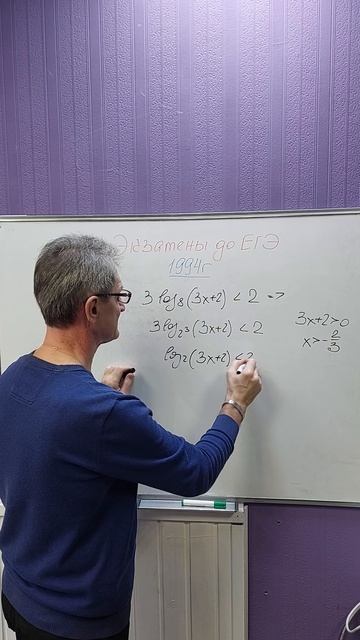 Экзамены до ЕГЭ
1994г
3 log₈(3x+2) < 2 =>
3 log₂³(3x+2) < 2
log₂(3x+2) < 2
3x+2>0
x>-2/3